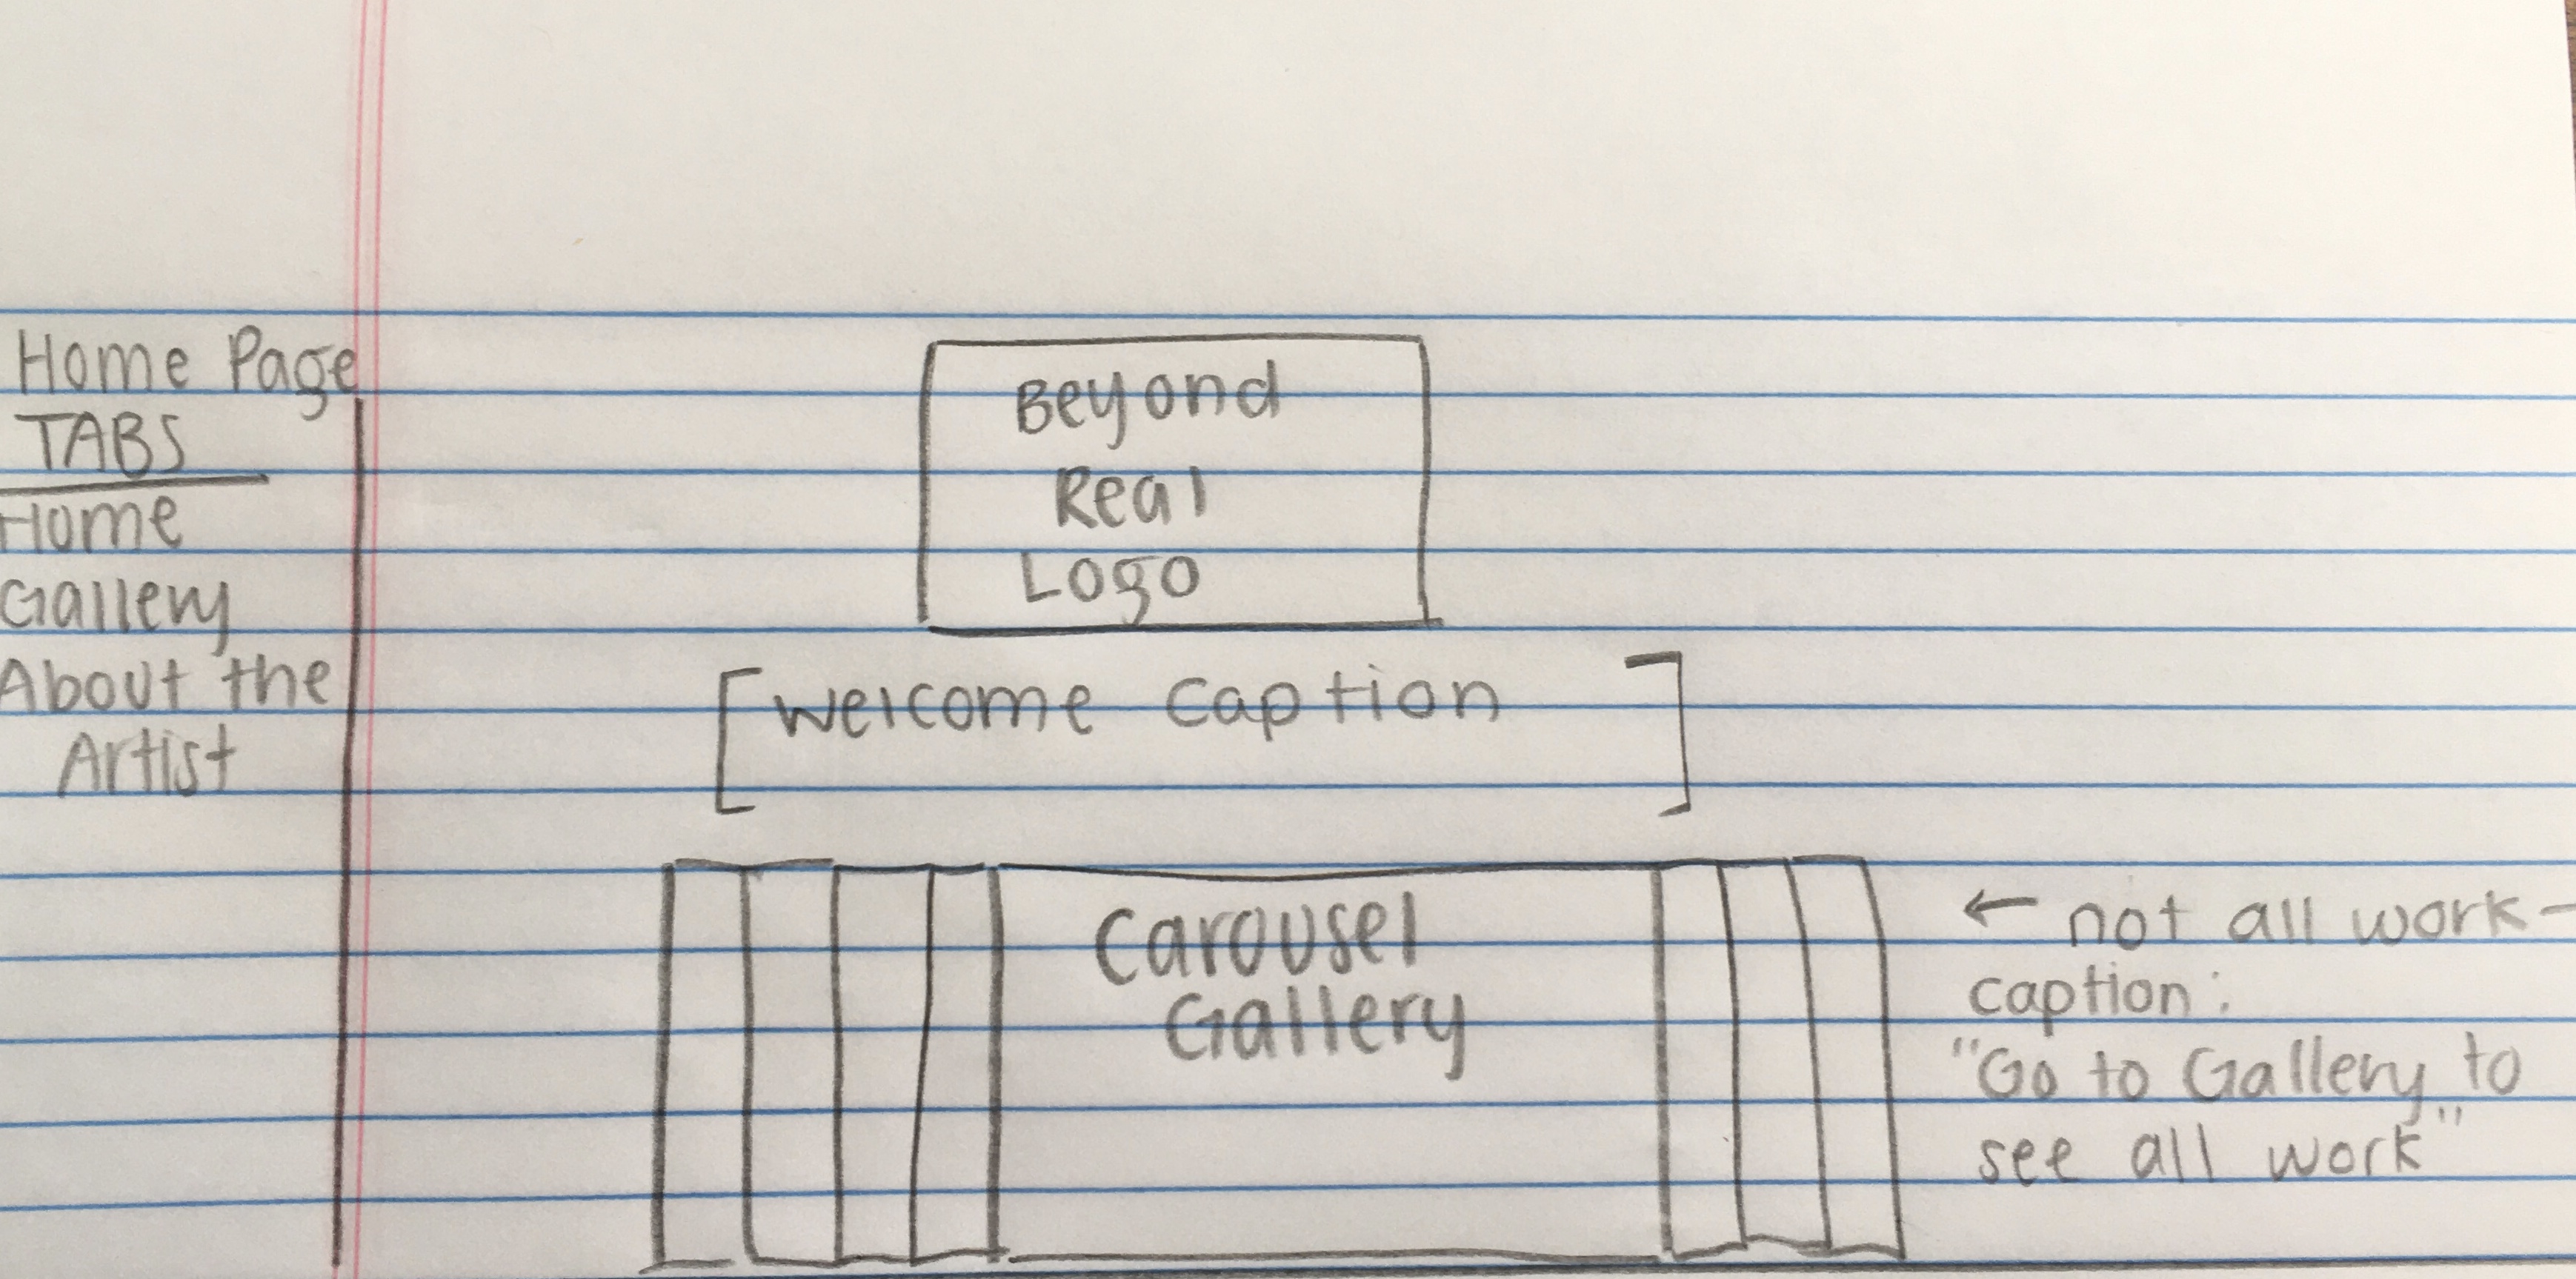 Home Page
TABS
Home
Gallery
About the
Artist
Beyond
Real
Logo
[welcome caption]
Carousel
Gallery
← not all work-
caption:
"Go to Gallery to
see all work"